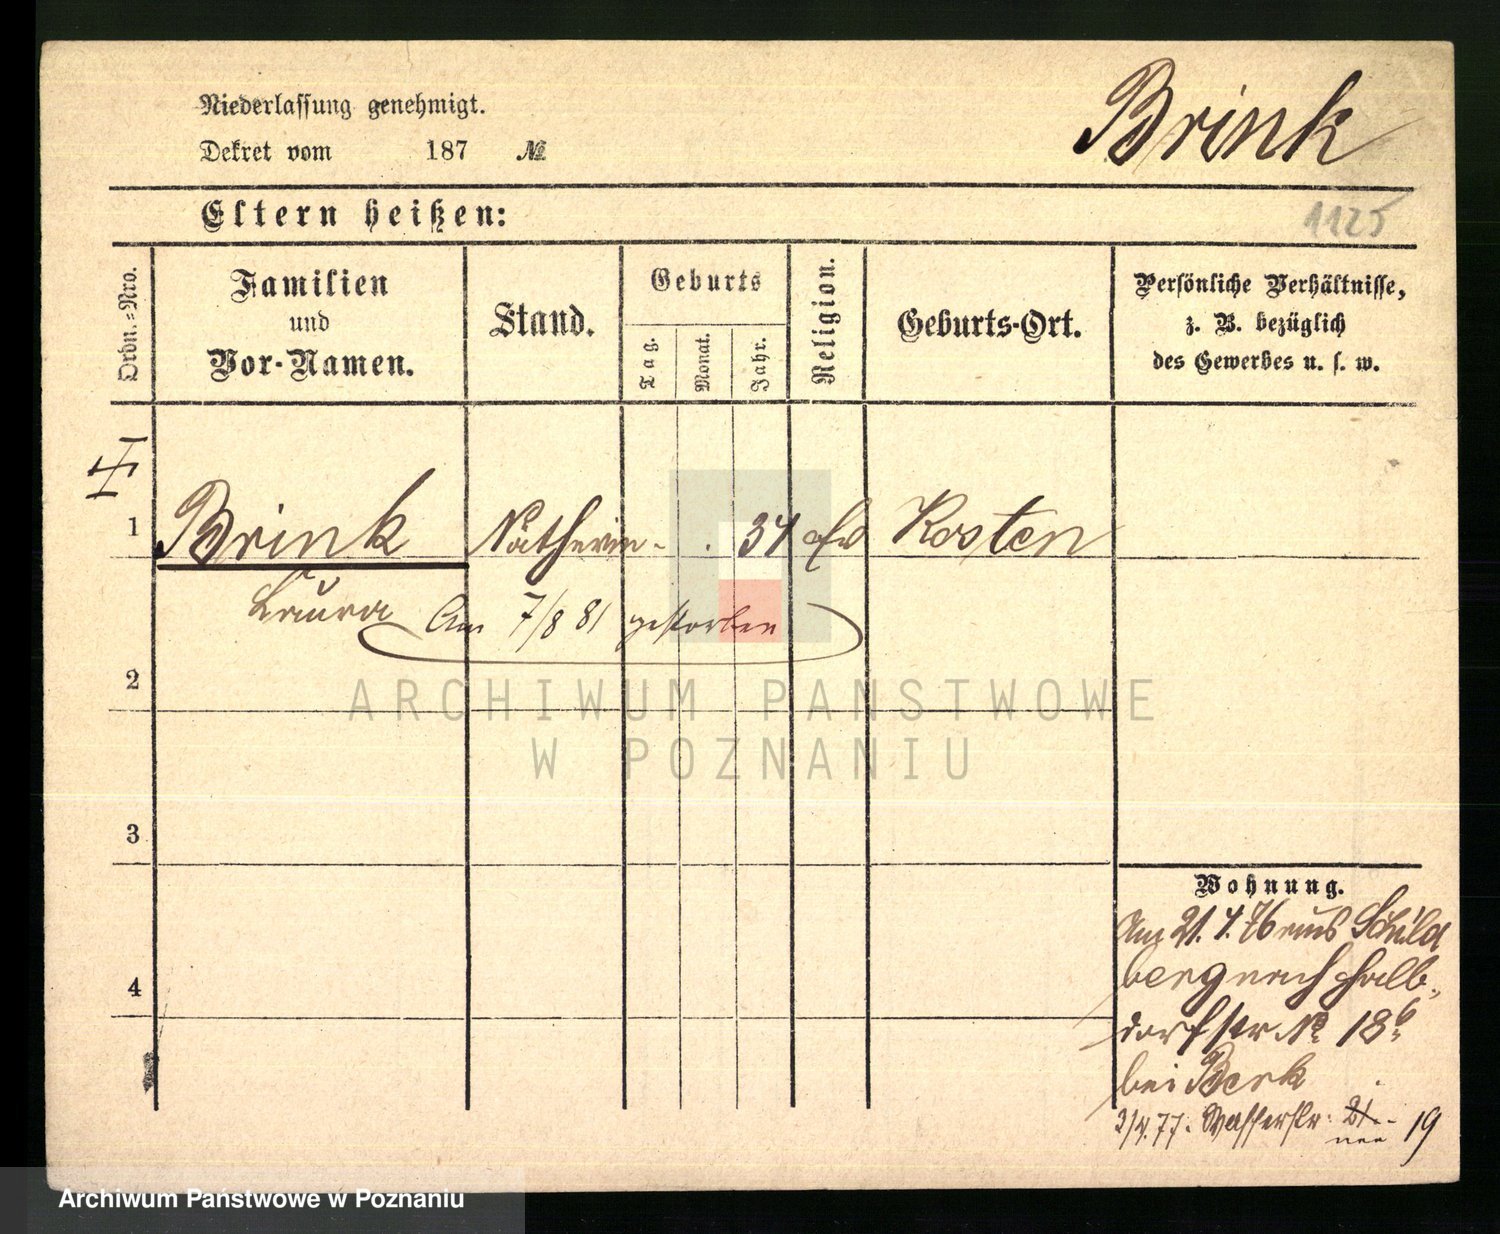 Brink
Niederlassung genehmigt.
Dekret vom 187 №
Eltern heißen:
1125
Ordn.-Nro.
Familien
und
Vor-Namen.
Stand.
Geburts
Tag.
Monat.
Jahr.
Religion.
Geburts-Ort.
Persönliche Verhältnisse,
z. B. bezüglich
des Gewerbes u. s. w.
1 Brink Nätherin 34 Kosten
Laura Am 7/8 81 gestorben
2
ARCHIWUM PANSTWOWE
W POZNANIU
3
4
Wohnung.
Am 21. 4. 76 aus Schild
berg nach Halb-
dorfstr № 18 b
bei Berk
3/4. 77. Wasserstr. 21.
neu 19
Archiwum Państwowe w Poznaniu